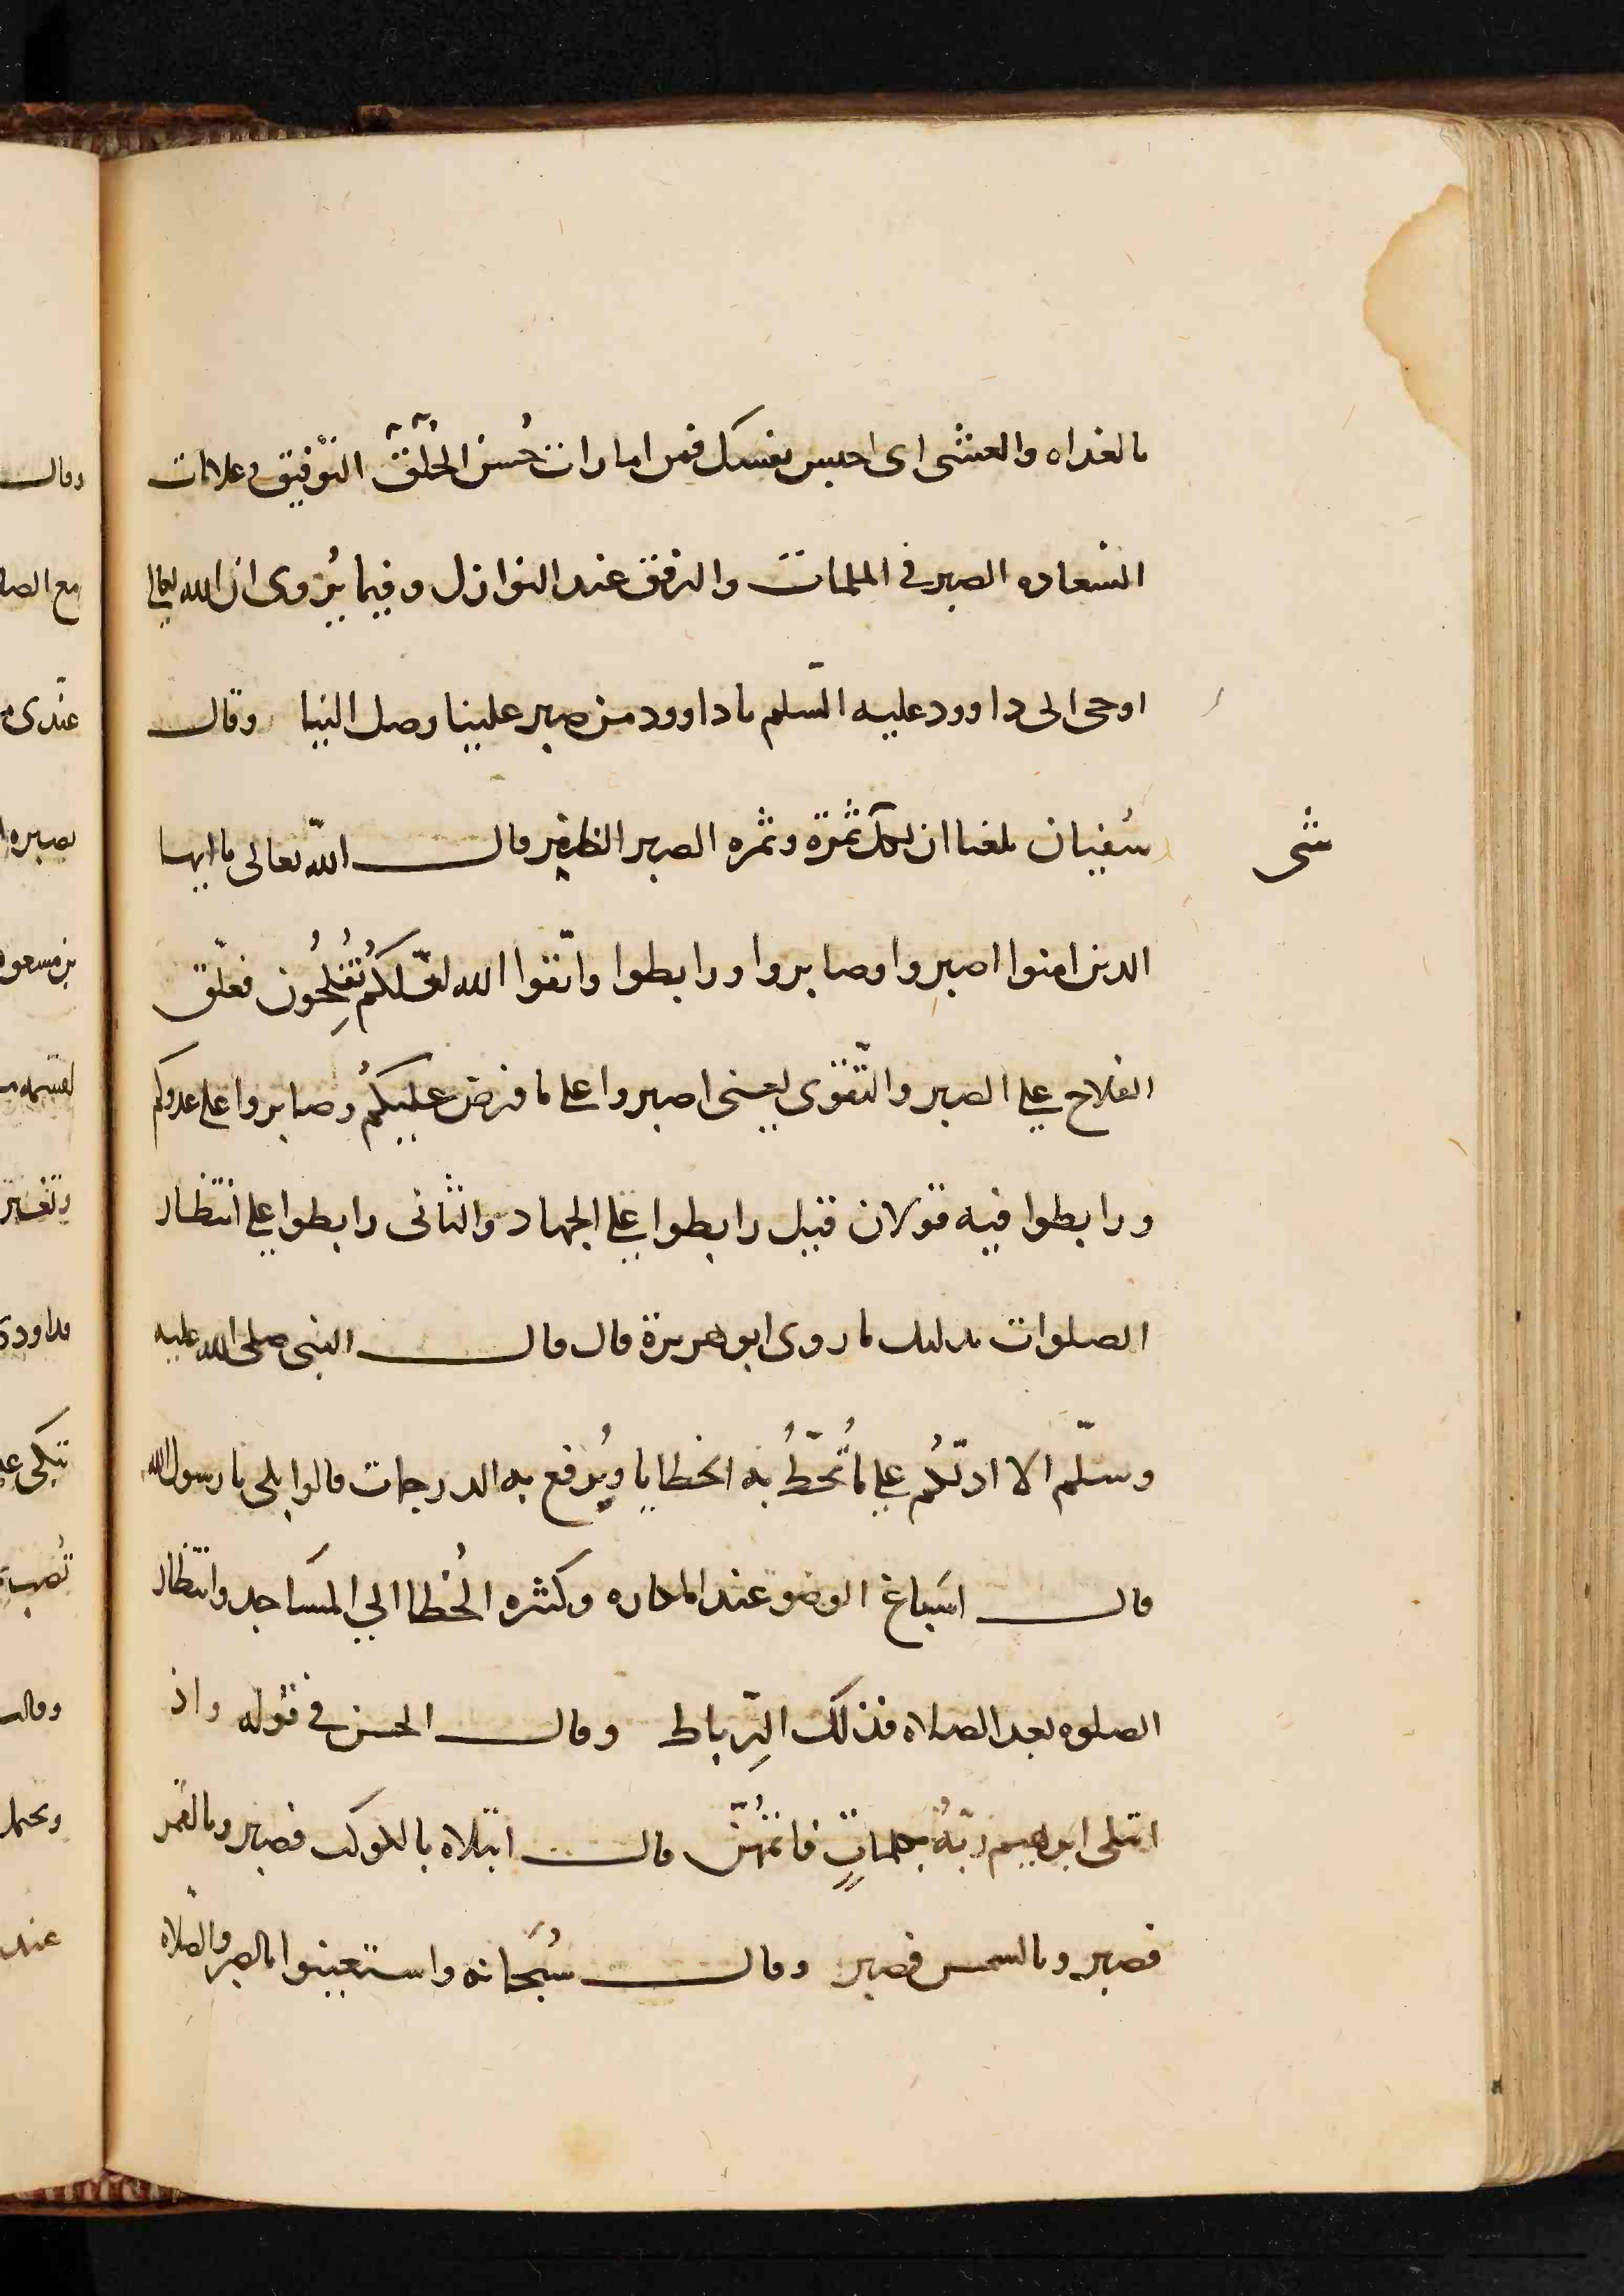 بالغداه والعشى اى احبس نفسك فمن امارات حُسن الخُلُق التوفيق وعلامات
السعاده الصبر فى الملمات والرفق عند النوازل وفيما يُروى ان الله تعالى
اوحى الى داوود عليه السّلم يا داوود من صبر علينا وصل الينا وقال
سُفيان بلغنا ان لكل ثمرة وثمره الصبر الظفر وقال الله تعالى يا ايها
شى
الذين امنوا اصبروا وصابروا ورابطوا واتّقوا الله لعلّكُم تُفلِحُون فعلّق
الفلاح على الصبر والتّقوى يعنى اصبروا على ما فرض عليكُم وصابروا على عدوكم
ورابطوا فيه قولان قيل رابطوا على الجهاد والثانى رابطوا على انتظار
الصلوات بدليل ما روى ابو هريرة قال قال النبى صلى الله عليه
وسلّم الا ادلّكُم على ما تُحَطُّ به الخطايا ويُرفع به الدرجات قالوا بلى يا رسول الله
قال اسَباغ الوضو عند المكاره وكثره الخُطا الى المسَاجد وانتظار
الصلوه بعد الصلاه فذلك الرِّباط وقال الحسن فى قوله واذ
ابتلى ابرهيم ربّهُ بكلماتٍ فاتمّهُنّ قال ابتلاه بالكوكب فصبر وبالقمر
فصبر وبالشمس فصبر وقال سُبحَانه واستعينوا بالصبر والصلاه